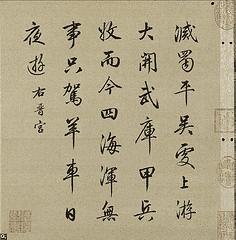 滅蜀平吳更上游
大開武庫甲兵
收而今四海渾無
事只駕羊車日
夜遊 右晉宮